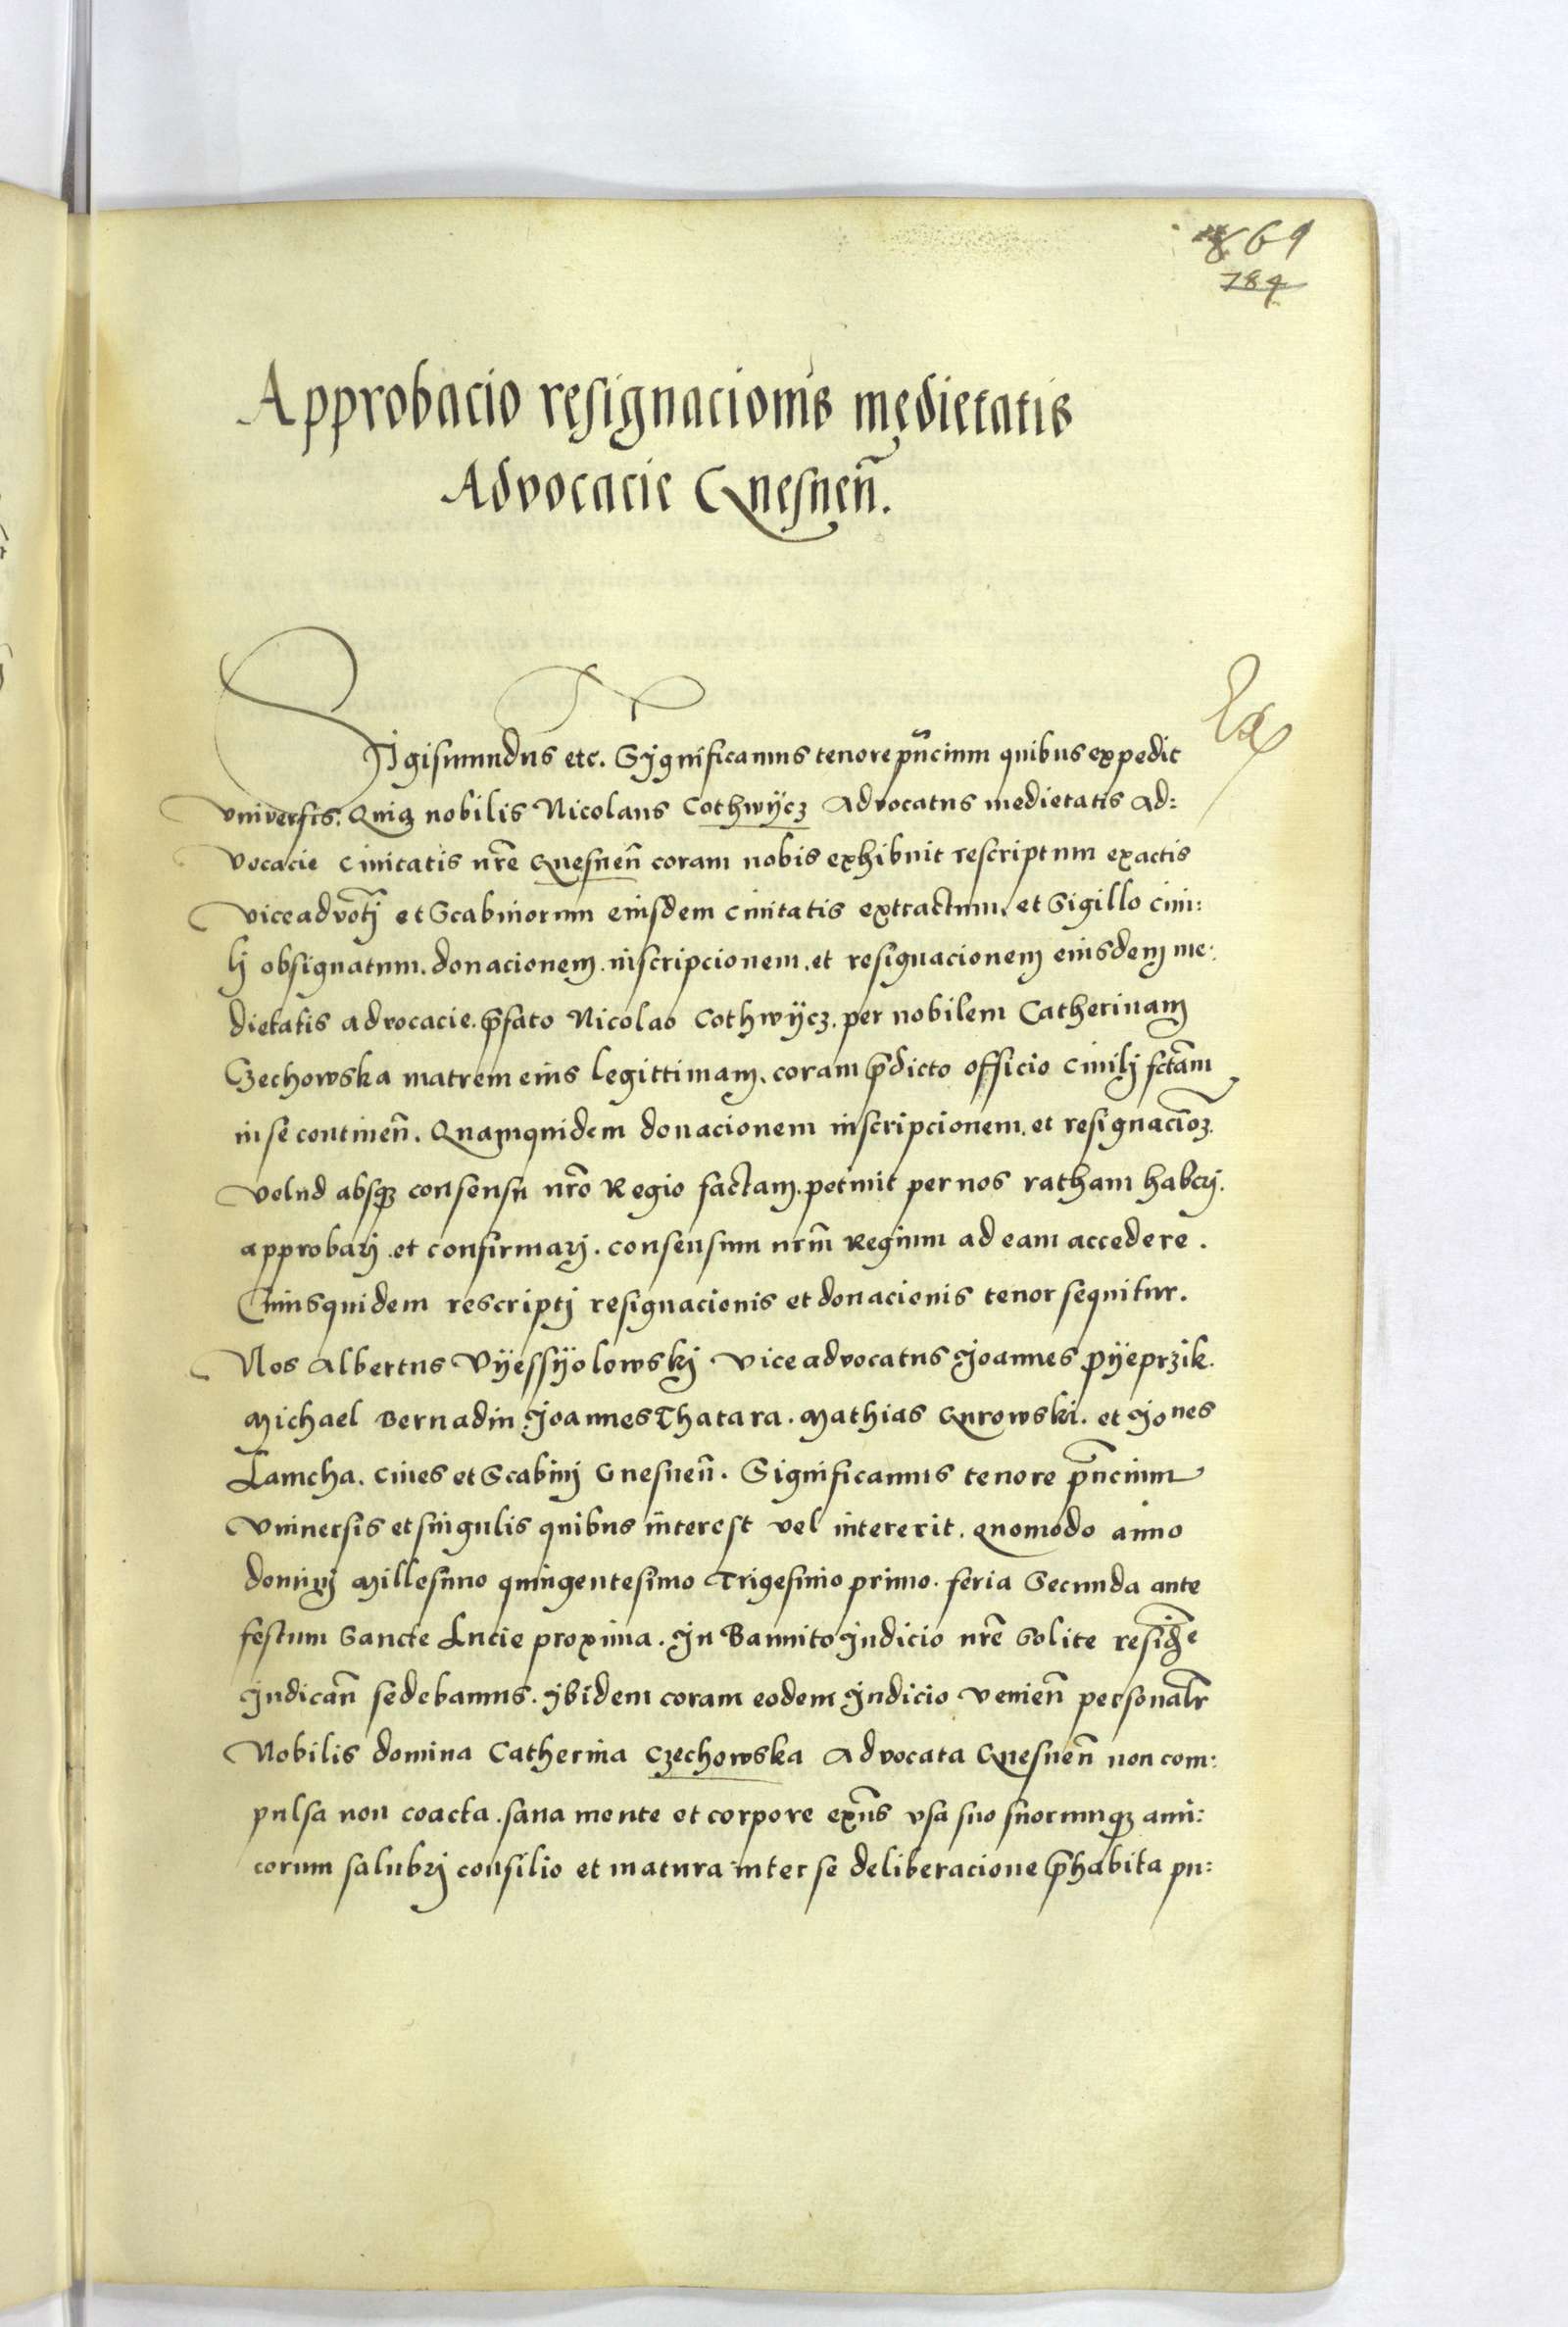 869
784
Approbacio resignacionis medietatis
Advocacie Gnesnen̄.
Sigismundus etc. Significamus tenore pn̄cium quibus expedit
vniversis. Quia nobilis Nicolaus Cothwÿcz Advocatus medietatis Ad:
vocacie Civitatis nr̄e Gnesnen̄ coram nobis exhibuit rescriptum exactis
viceadvoc̄tj et Scabinorum eiusdem civitatis extractum, et Sigillo civi:
lj obsignatum. donacionem. inscripcionem. et resignacionem eiusdem me:
dietatis advocacie. p̄fato Nicolao Cothwÿcz. per nobilem Catherinam
Czechowska matrem eius legittimam. coram p̄dicto officio civilj fctām
in se continen̄. Quamquidem donacionem inscripcionem. et resignaciōꝫ.
velud absqꝫ consensu nr̄o Regio factam. petiuit per nos ratham haberj.
approbarj. et confirmarj. consensum nrm̄ Regium ad eam accedere.
Cuiusquidem rescriptj resignacionis et donacionis tenor sequitur.
Nos Albertus Vÿessÿolowskj viceadvocatus Joannes Pÿeprzik.
Michael Bernadin Joannes Thatara. Mathias Gurowski. et Jones
Lamcha. Cives et Scabinj Gnesnen̄. Significamus tenore p̄ncium
Vniuersis et singulis quibus interest vel intererit. quomodo anno
dominj Millesimo quingentesimo Trigesimo primo. feria Secunda ante
festum Sancte Lucie proxima. In Bannito Judicio nr̄e Solite resid̄e
Judicān sedebamus. Ibidem coram eodem Judicio venien̄ personalr̄
Nobilis domina Catherina Czechowska Advocata Gnesnen̄ non com:
pulsa non coacta. sana mente et corpore exn̄s vsa suo suorumqꝫ ami:
corum salubrj consilio et matura inter se deliberacione p̄habita pu: